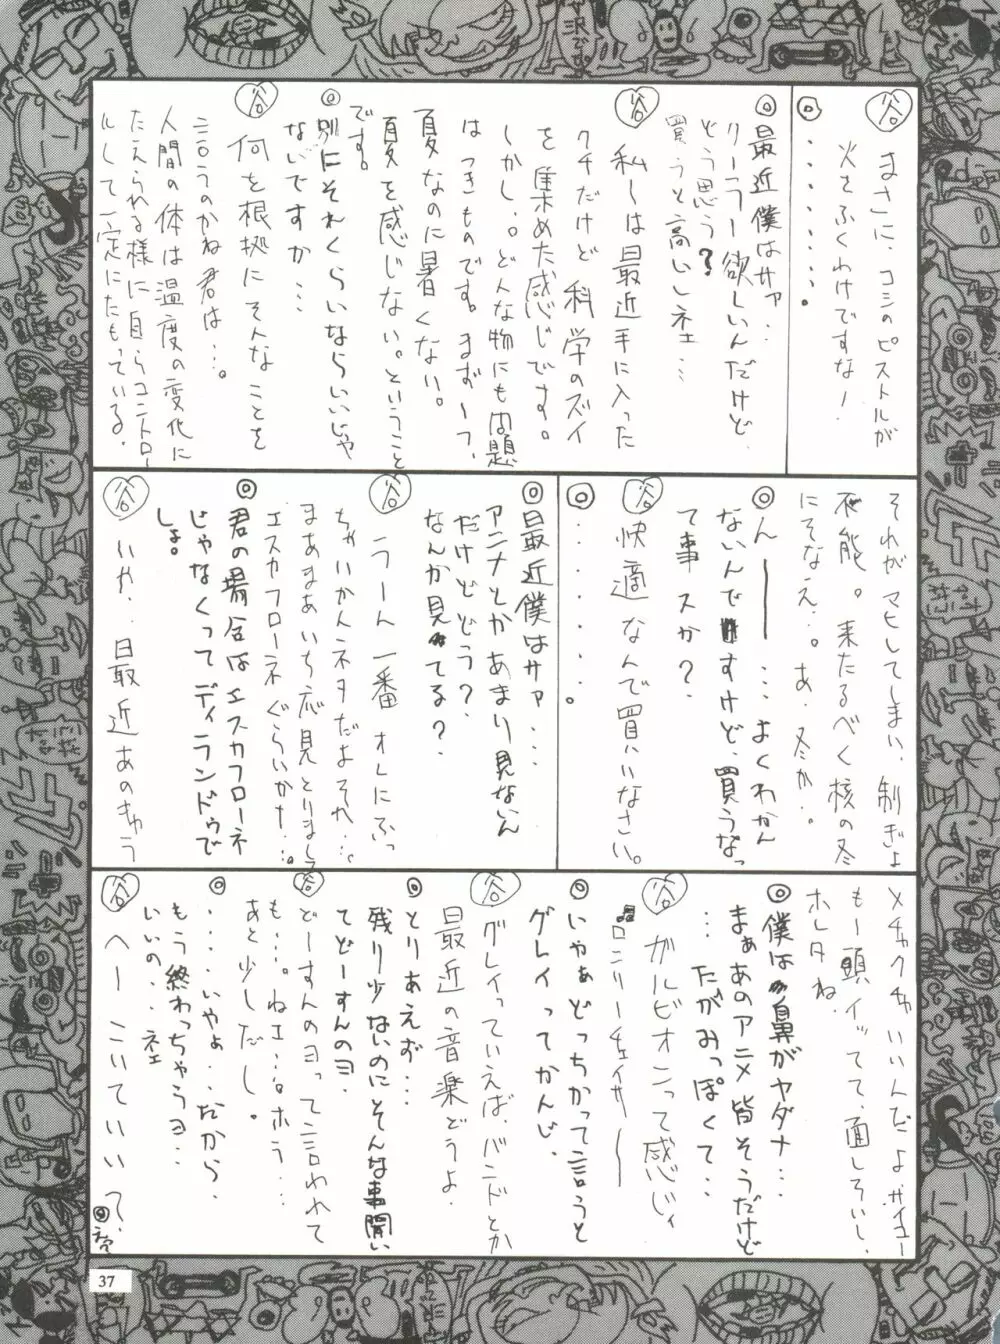 谷 まさに、コミのピストルが
火をふくわけですな！
◎………。
◎最近僕はサァ…
リーラー欲しいんだけど、
どう思う？
買うと高いしネェ…
谷 私〜は最近手に入った
クチだけど科学のズイ
を集めた感じです。
しかし。。どんな物にも問題
はつきものです。まず一つ、
夏なのに暑くない。
夏を感じない。ということ
です。
◎別にそれくらいならいいじゃ
ないですか…
谷 何を根拠にそんなことを
言うのかね君は…。
人間の体は温度の変化に
たえられる様に自らコントロー
ルして一定にたもっている、
それがマヒしてしまい、制ぎょ
不能。来たるべく核の冬
にそなえ…。あ、冬か。
◎ん———…よくわかん
ないんですけど、買うなっ
て事スか？
谷 快適なんで買いなさい。
◎………。
◎最近僕はサァ…
アニメとかあまり見ないん
だけどどう？
なんか見てる？
谷 うーん 一番オレにふっ
ちゃいかんネタだよそれ…。
まあまあいち応見とりまして
エスカフローネぐらいかナ…。
◎君の場合はエスカフローネ
じゃなくってディランドゥで
しょ。
谷 いや、、最近あのきゅう
メチャクチャいいんだよ、サイコー
もー頭イッてて、面しろいし、
ホレタね
◎僕は鼻がヤダナ…
まぁあのアニメ皆そうだけど
…たがみっぽくて…
谷 ガルビオンって感じィ
♫ロンリーチェイサ———
◎いやぁどっちかって言うと
グレイってかんじ
谷 グレイっていえば、バンドとか
最近の音楽どうよ。
◎とりあえず…
残り少ないのにそんな事聞い
てどーすんのヨ、
谷 どーすんのヨって言われて
も…。ねェ…。ホラ…
あと少しだし。
◎……いやょ…だから、
もう終わっちゃうヨ…
いいの、、ネェ
谷 へー こいていいでっ、
37